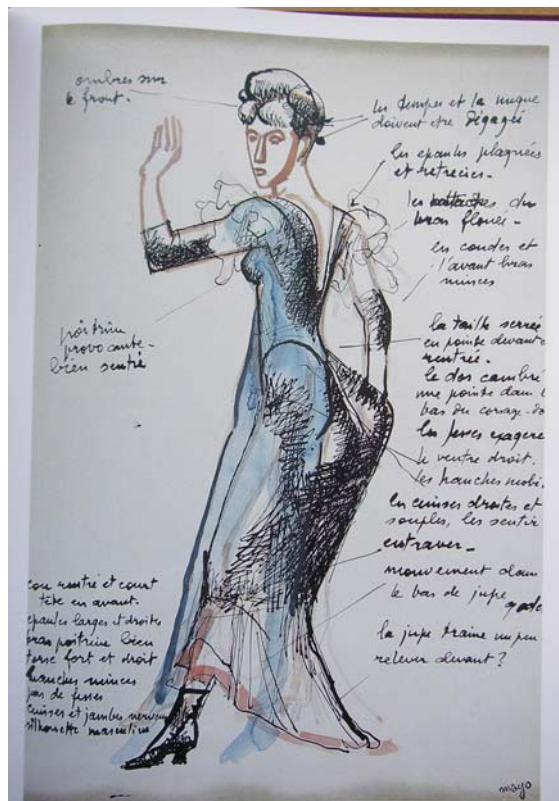 ombres sur
le front.
les tempes et la nuque
doivent etre dégagé
les epaules plaquées
et retrecies-
les du
bras flouée-
en coudes et
l'avant bras
minces
la taille serrée
en pointe devant
rentrée.
le dos cambré
une pointe dans l
bas du corsage-do
les fesses exagere
le ventre droit.
les hanches mobi
les cuisses droites et
souples, les sentir
entraver-
mouvement dans
le bas de jupe
la jupe traine un peu
relever devant?
poitrine
provocante-
bien sentie
cou rentré et court
tête en avant.
epaules larges et droites
poitrine bien
torse fort et droit
hanches minces
pas de fesses
cuisses et jambes nerveu
silhouette masculine
mayo